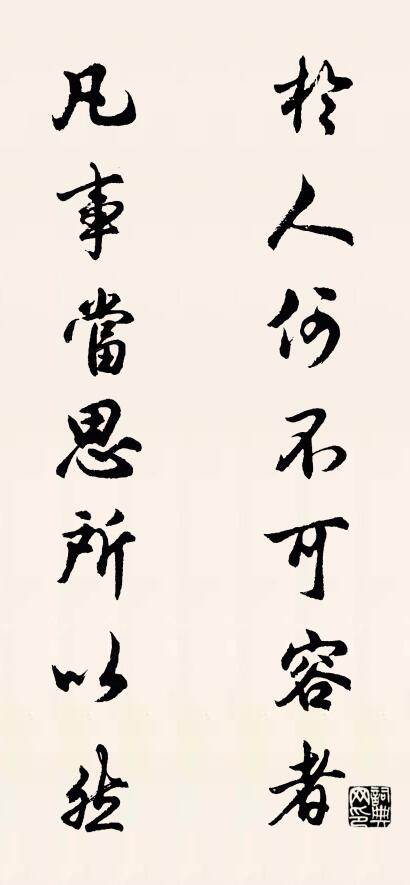 於人何不可容者
凡事當思所以然
詞典網印